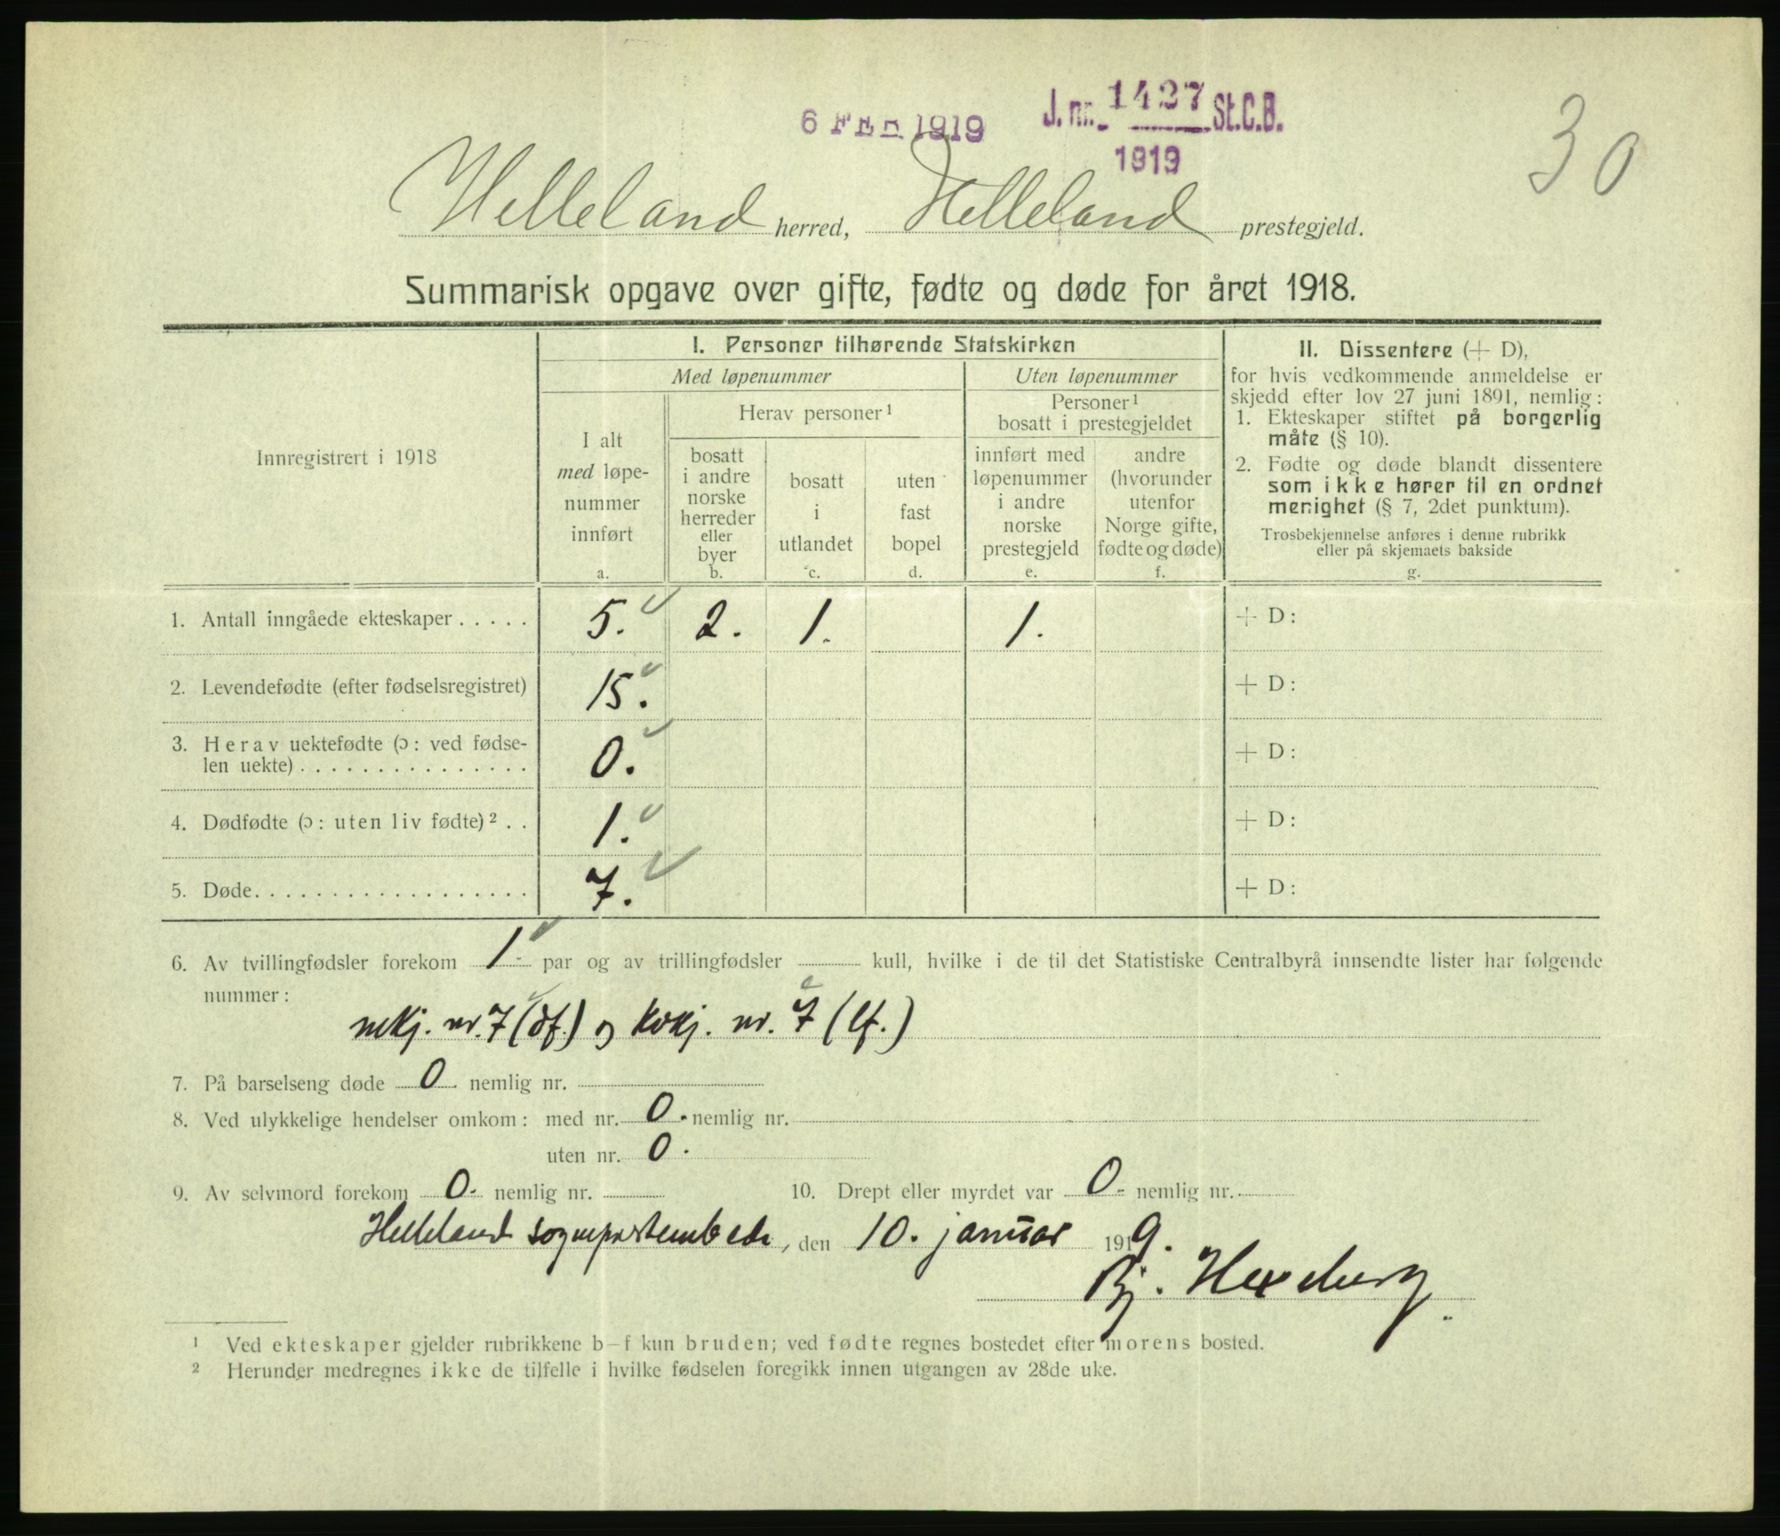 6 FEB 1919 J. nr. 1427 St.C.B.
1919
30
Helleland herred, Helleland prestegjeld.
Summarisk opgave over gifte, fødte og døde for året 1918.
Innregistrert i 1918
I. Personer tilhørende Statskirken
Med løpenummer
Uten løpenummer
I alt
med løpe-
nummer
innført
a.
Herav personer ¹
bosatt
i andre
norske
herreder
eller
byer
b.
bosatt
i
utlandet
c.
uten
fast
bopel
d.
Personer ¹
bosatt i prestegjeldet
innført med
løpenummer
i andre
norske
prestegjeld
e.
andre
(hvorunder
utenfor
Norge gifte,
fødte og døde)
f.
II. Dissentere (+ D),
for hvis vedkommende anmeldelse er
skjedd efter lov 27 juni 1891, nemlig:
1. Ekteskaper stiftet på borgerlig
måte (§ 10).
2. Fødte og døde blandt dissentere
som ikke hører til en ordnet
menighet (§ 7, 2det punktum).
Trosbekjennelse anføres i denne rubrikk
eller på skjemaets bakside
g.
1. Antall inngåede ekteskaper . . . . . 5. 2. 1. 1. + D:
2. Levendefødte (efter fødselsregistret) 15. + D:
3. Herav uektefødte (ɔ: ved fødse-
len uekte) . . . . . . . . . . . . . . . 0. + D:
4. Dødfødte (ɔ: uten liv fødte) ² . . 1. + D:
5. Døde. . . . . . . . . . . . . . . . . . 7. + D:
6. Av tvillingfødsler forekom 1. par og av trillingfødsler kull, hvilke i de til det Statistiske Centralbyrå innsendte lister har følgende
nummer:
mkj. nr. 7 (df.) og kvkj. nr. 7 (lf.)
7. På barselseng døde 0 nemlig nr.
8. Ved ulykkelige hendelser omkom: med nr. 0. nemlig nr.
uten nr. 0.
9. Av selvmord forekom 0. nemlig nr. 10. Drept eller myrdet var 0. nemlig nr.
Helleland sogneprestembede, den 10. januar 1919.
Bj. Hexeberg.
¹ Ved ekteskaper gjelder rubrikkene b–f kun bruden; ved fødte regnes bostedet efter morens bosted.
² Herunder medregnes ikke de tilfelle i hvilke fødselen foregikk innen utgangen av 28de uke.